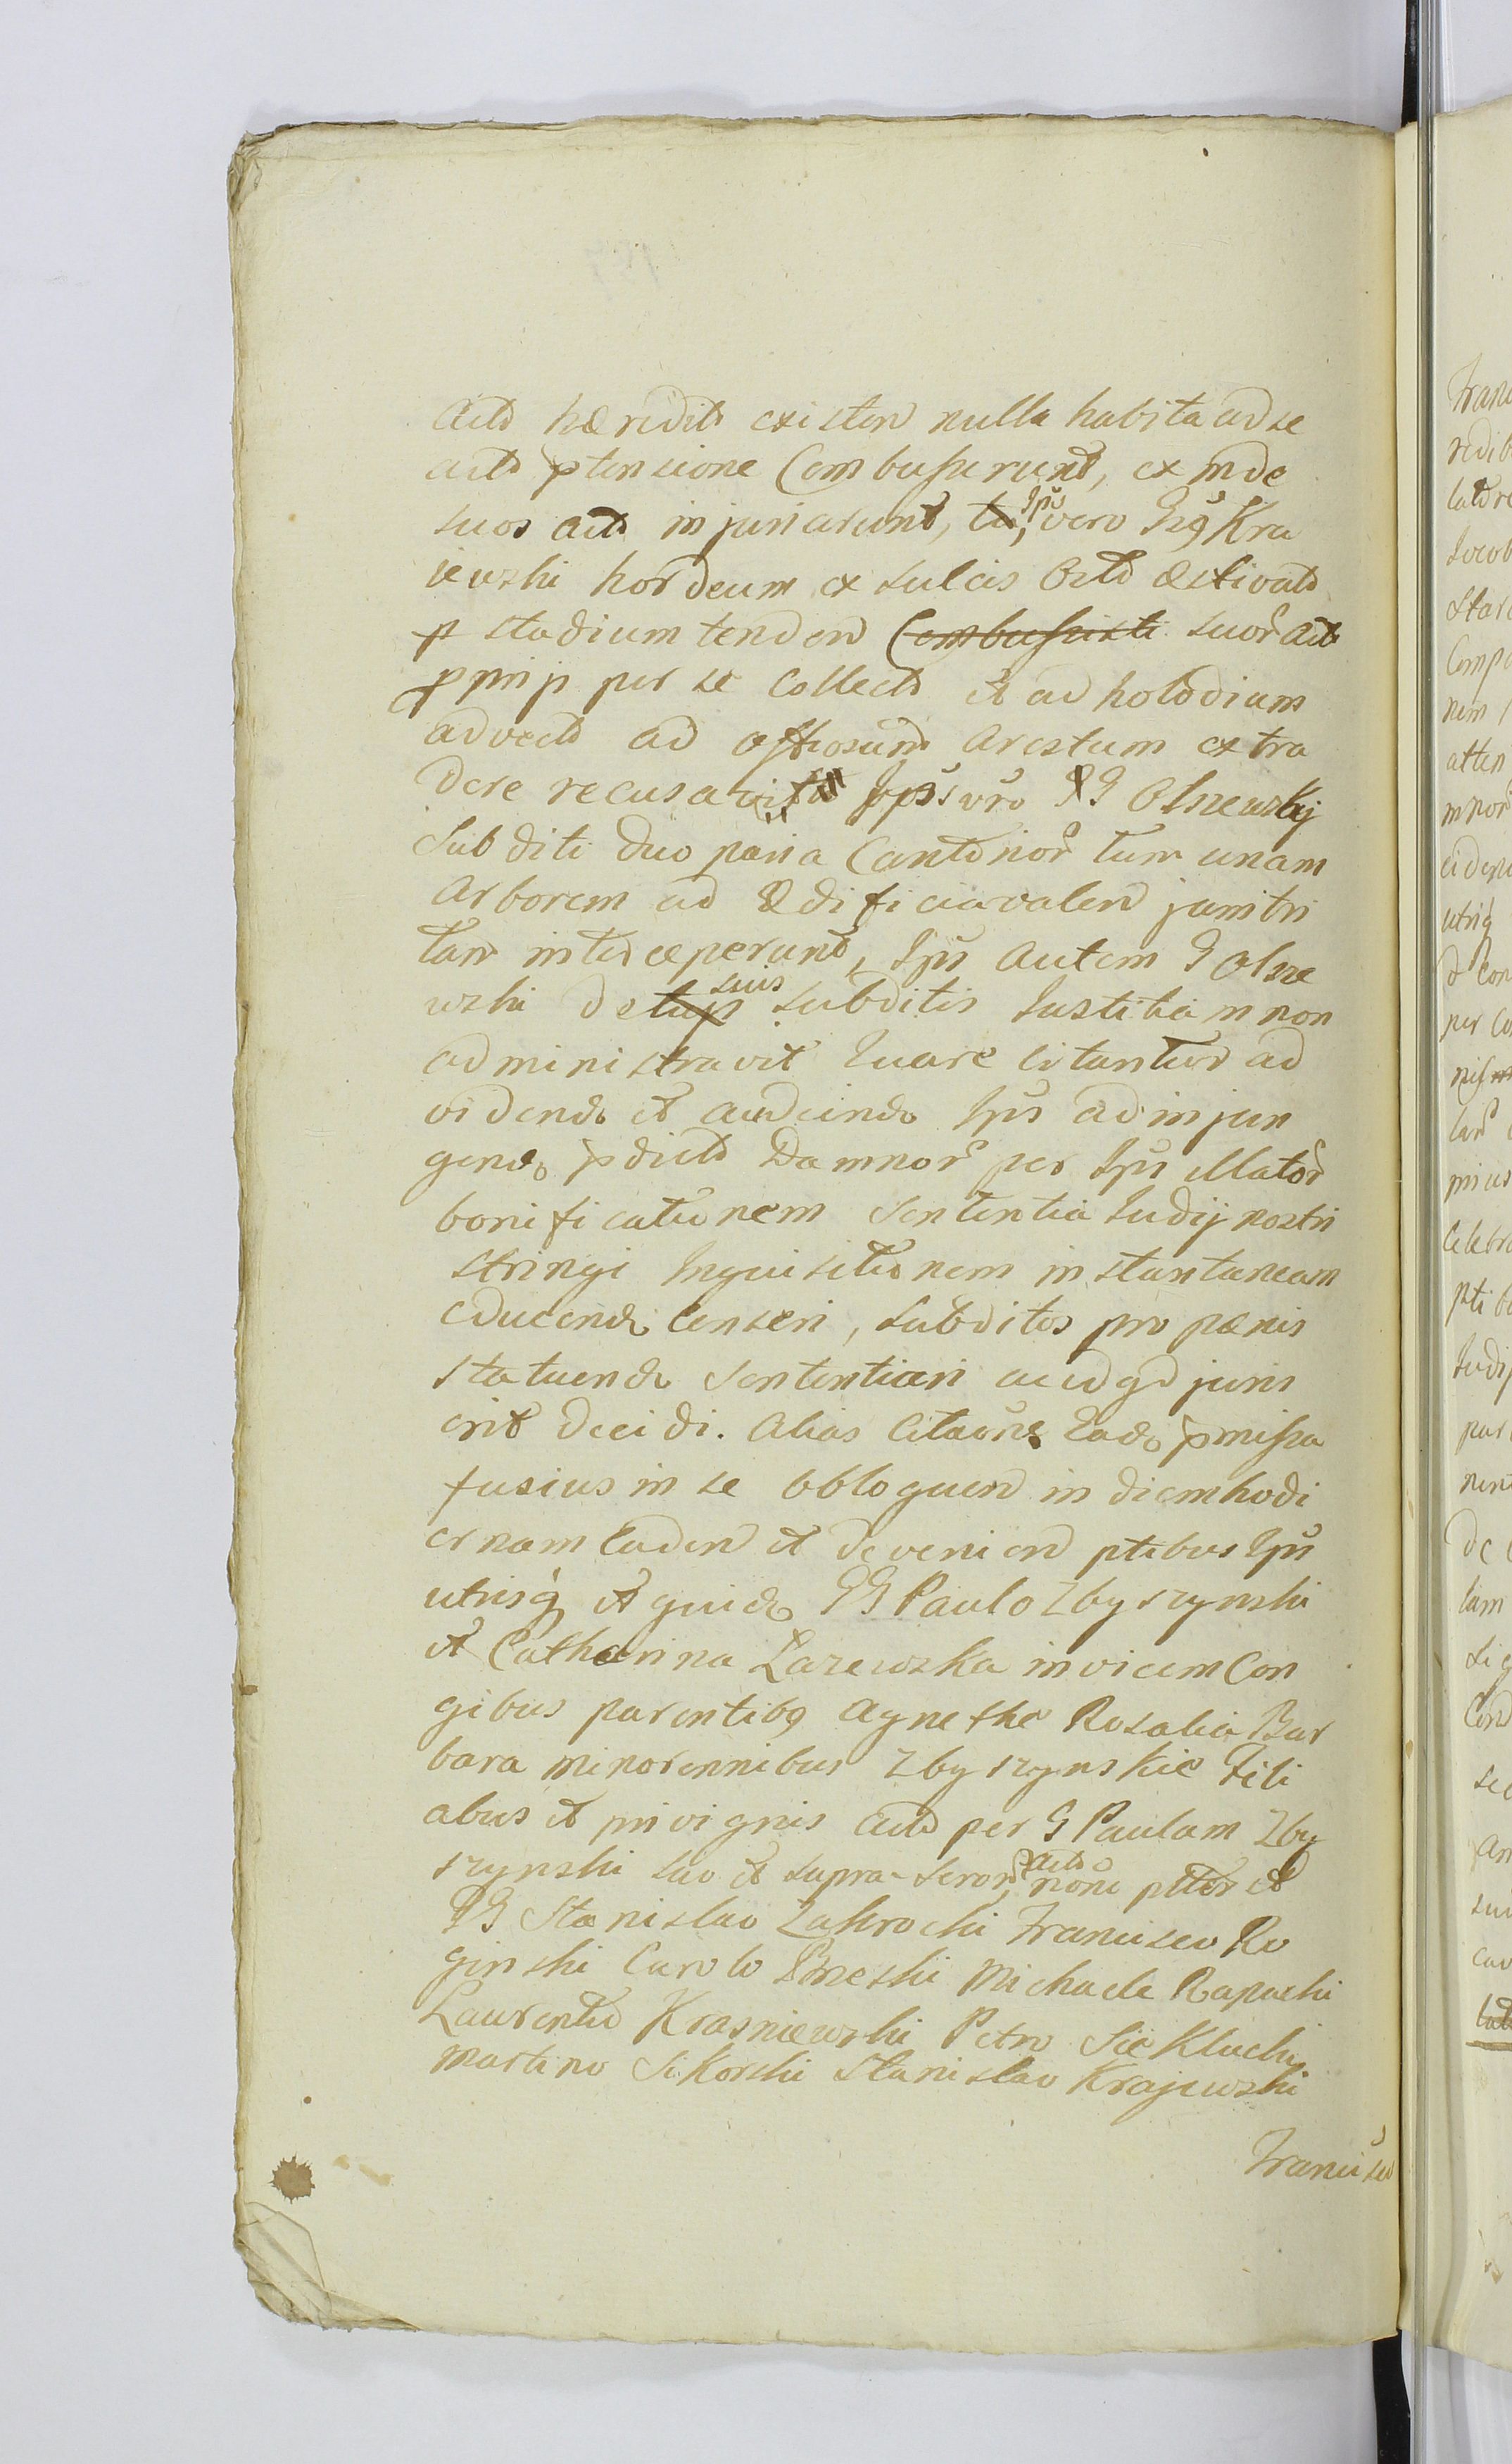 Actor hæredit existen nulla habita ad se
act ptensione Combusserunt, ex inde
suos act injuriarunt, tu, Ipse vero Gsus Kra
jewski hordeum ex sulcis Act æstivat
p stadium tenden Combussisti suor Act
ppriis per se Collect et ad holodium
advect ad offiosum Arestum extra
dere recusavit Ipsi vero GG Olszewskij
Subditi duo paria Cantonor tum unam
Arborem ad Ædificia valen
tam interceperunt, Ipse Autem G Olsze
wski de tuis suis subditis Justitiam non
administravit Quare Citantur ad
videndo et audiendo Ipsi ad injun
gendo pdict Damnor per Ipsi illator
bonificationem Sententia Judij nostri
stringi Inquisitionem instantaneam
educendo Censeri, Subditos pro pænis
statuendo Sententiari ac id qd juris
erit decidi. Alias Citaone Eado pmissa
fusius in se obloquen in diem hodi
ernam Caden et devenien ptibus Ipsis
utrisq et quido GG Paulo Zbyszynski
et Catharina Lazewska invicem Con
gibus parentibq Agnethe Rosalia Bar
bara minorennibus Zbyszynskie Fili
abus et privignis Act per G Paulum Zby
szynski suo et supra Scror Act noie ptter et
GG Stanislao Zakrocki Francisco Ro
ginski Carolo Brzeski Michaele Rapacki
Laurentio Krasniewski Petro Sie Klucki
Martino Sikorski Stanislao Krajewski
Francisco